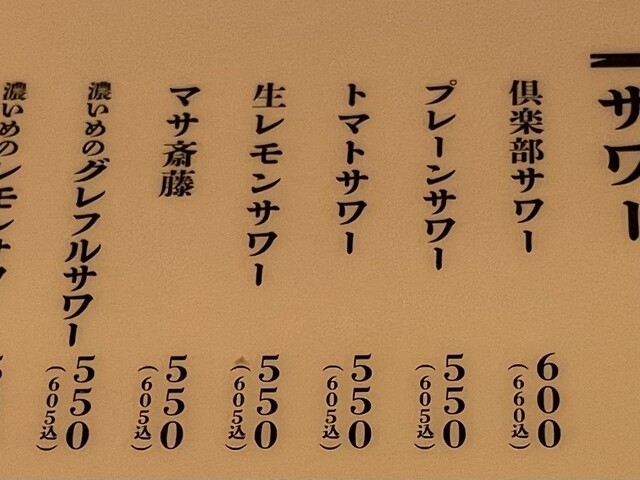 サワー
倶楽部サワー
600
(660込)
プレーンサワー
550
(605込)
トマトサワー
550
(605込)
生レモンサワー
550
(605込)
マサ斎藤
550
(605込)
濃いめのグレフルサワー
550
(605込)
濃いめのレモンサワ